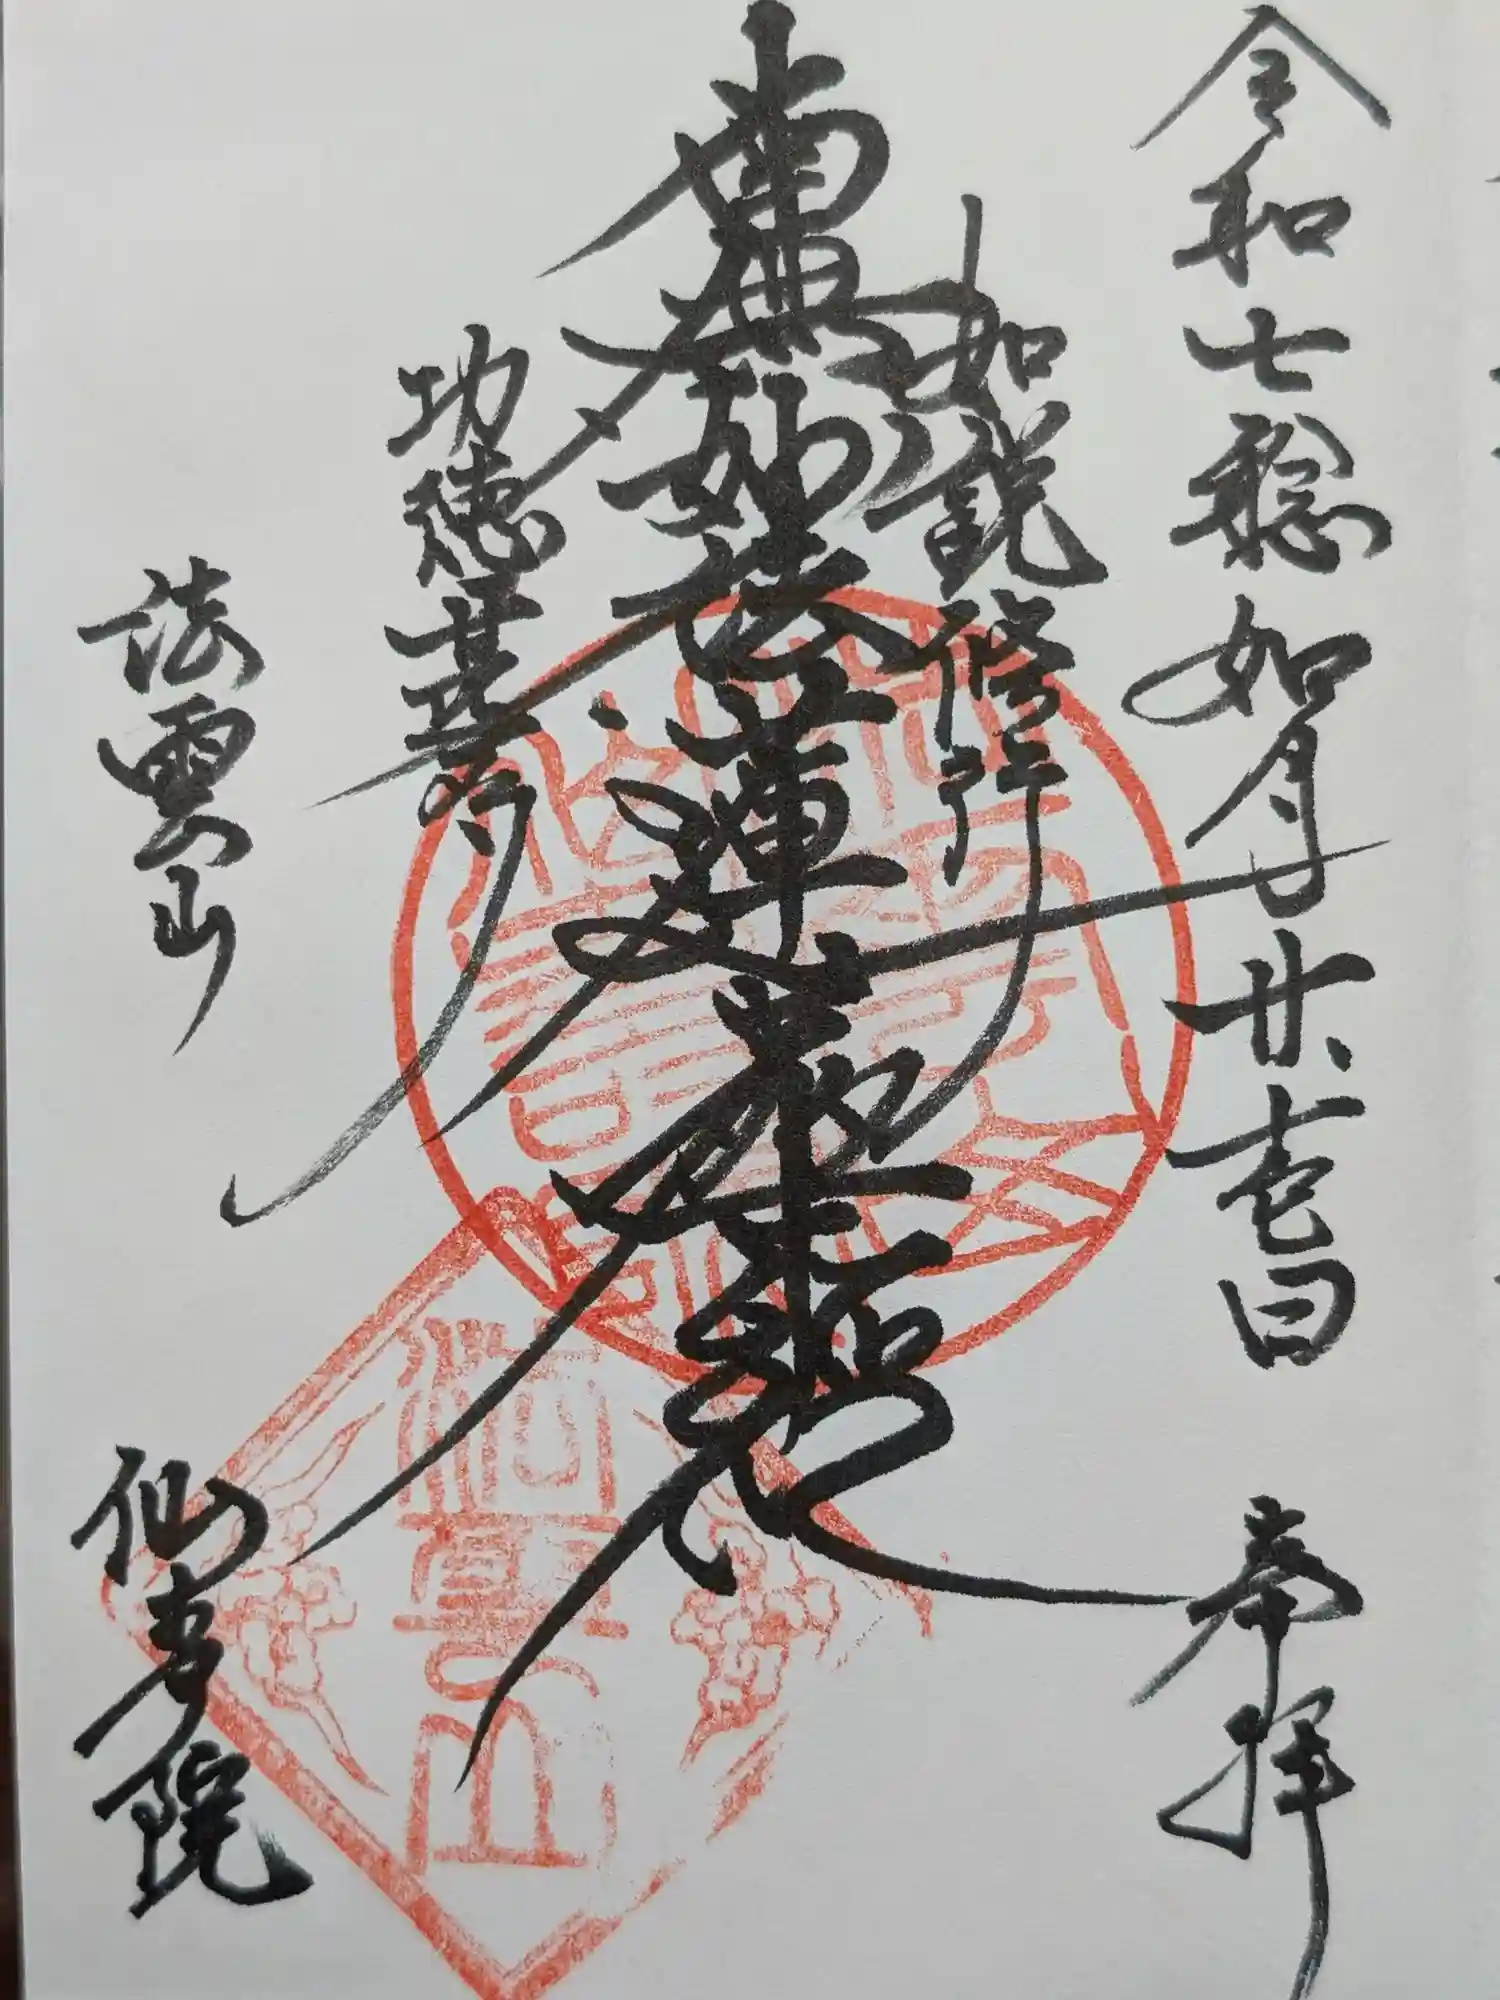 令和七稔如月廿壱日 奉拝
如説修行
南無妙法蓮華経
功徳甚多
法雲山
仙壽院
法雲山